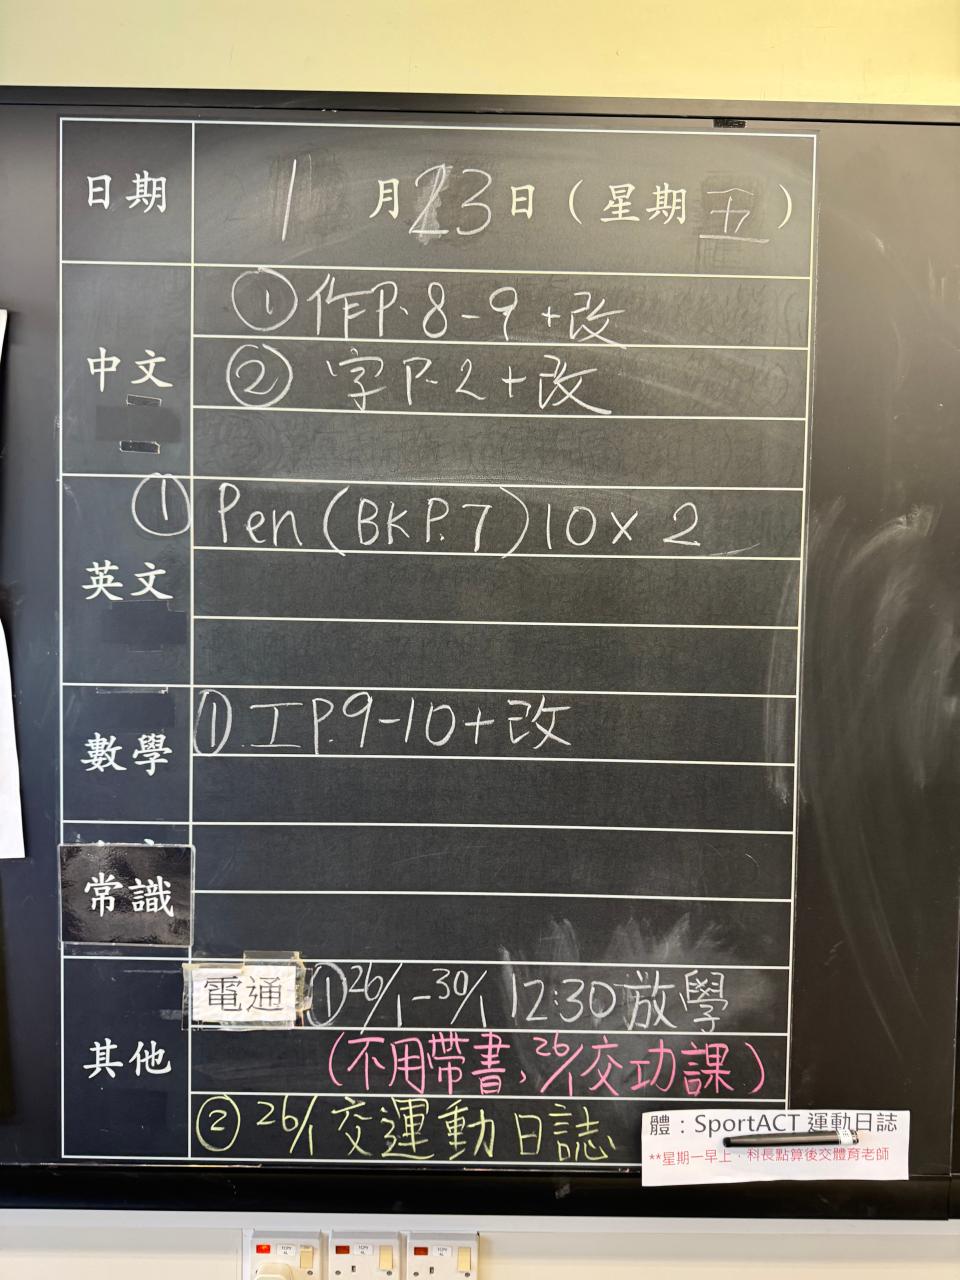 日期 1月23日（星期五）
中文
① 作P.8-9+改
② 字P.2+改
英文
① Pen (BK P.7) 10×2
數學
①.工P.9-10+改
常識
其他
電通 ①26/1-30/1 12:30放學
(不用帶書，26/1交功課)
② 26/1交運動日誌
體：SportACT 運動日誌
**星期一早上，科長點算後交體育老師